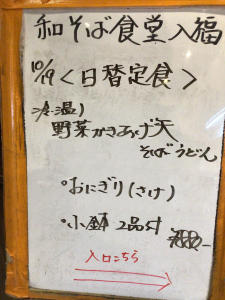 和そば食堂入福
10/19<日替定食>
冷・温)
野菜かきあげ天
そばうどん
・おにぎり(さけ)
・小鉢 2品付
入口こちら